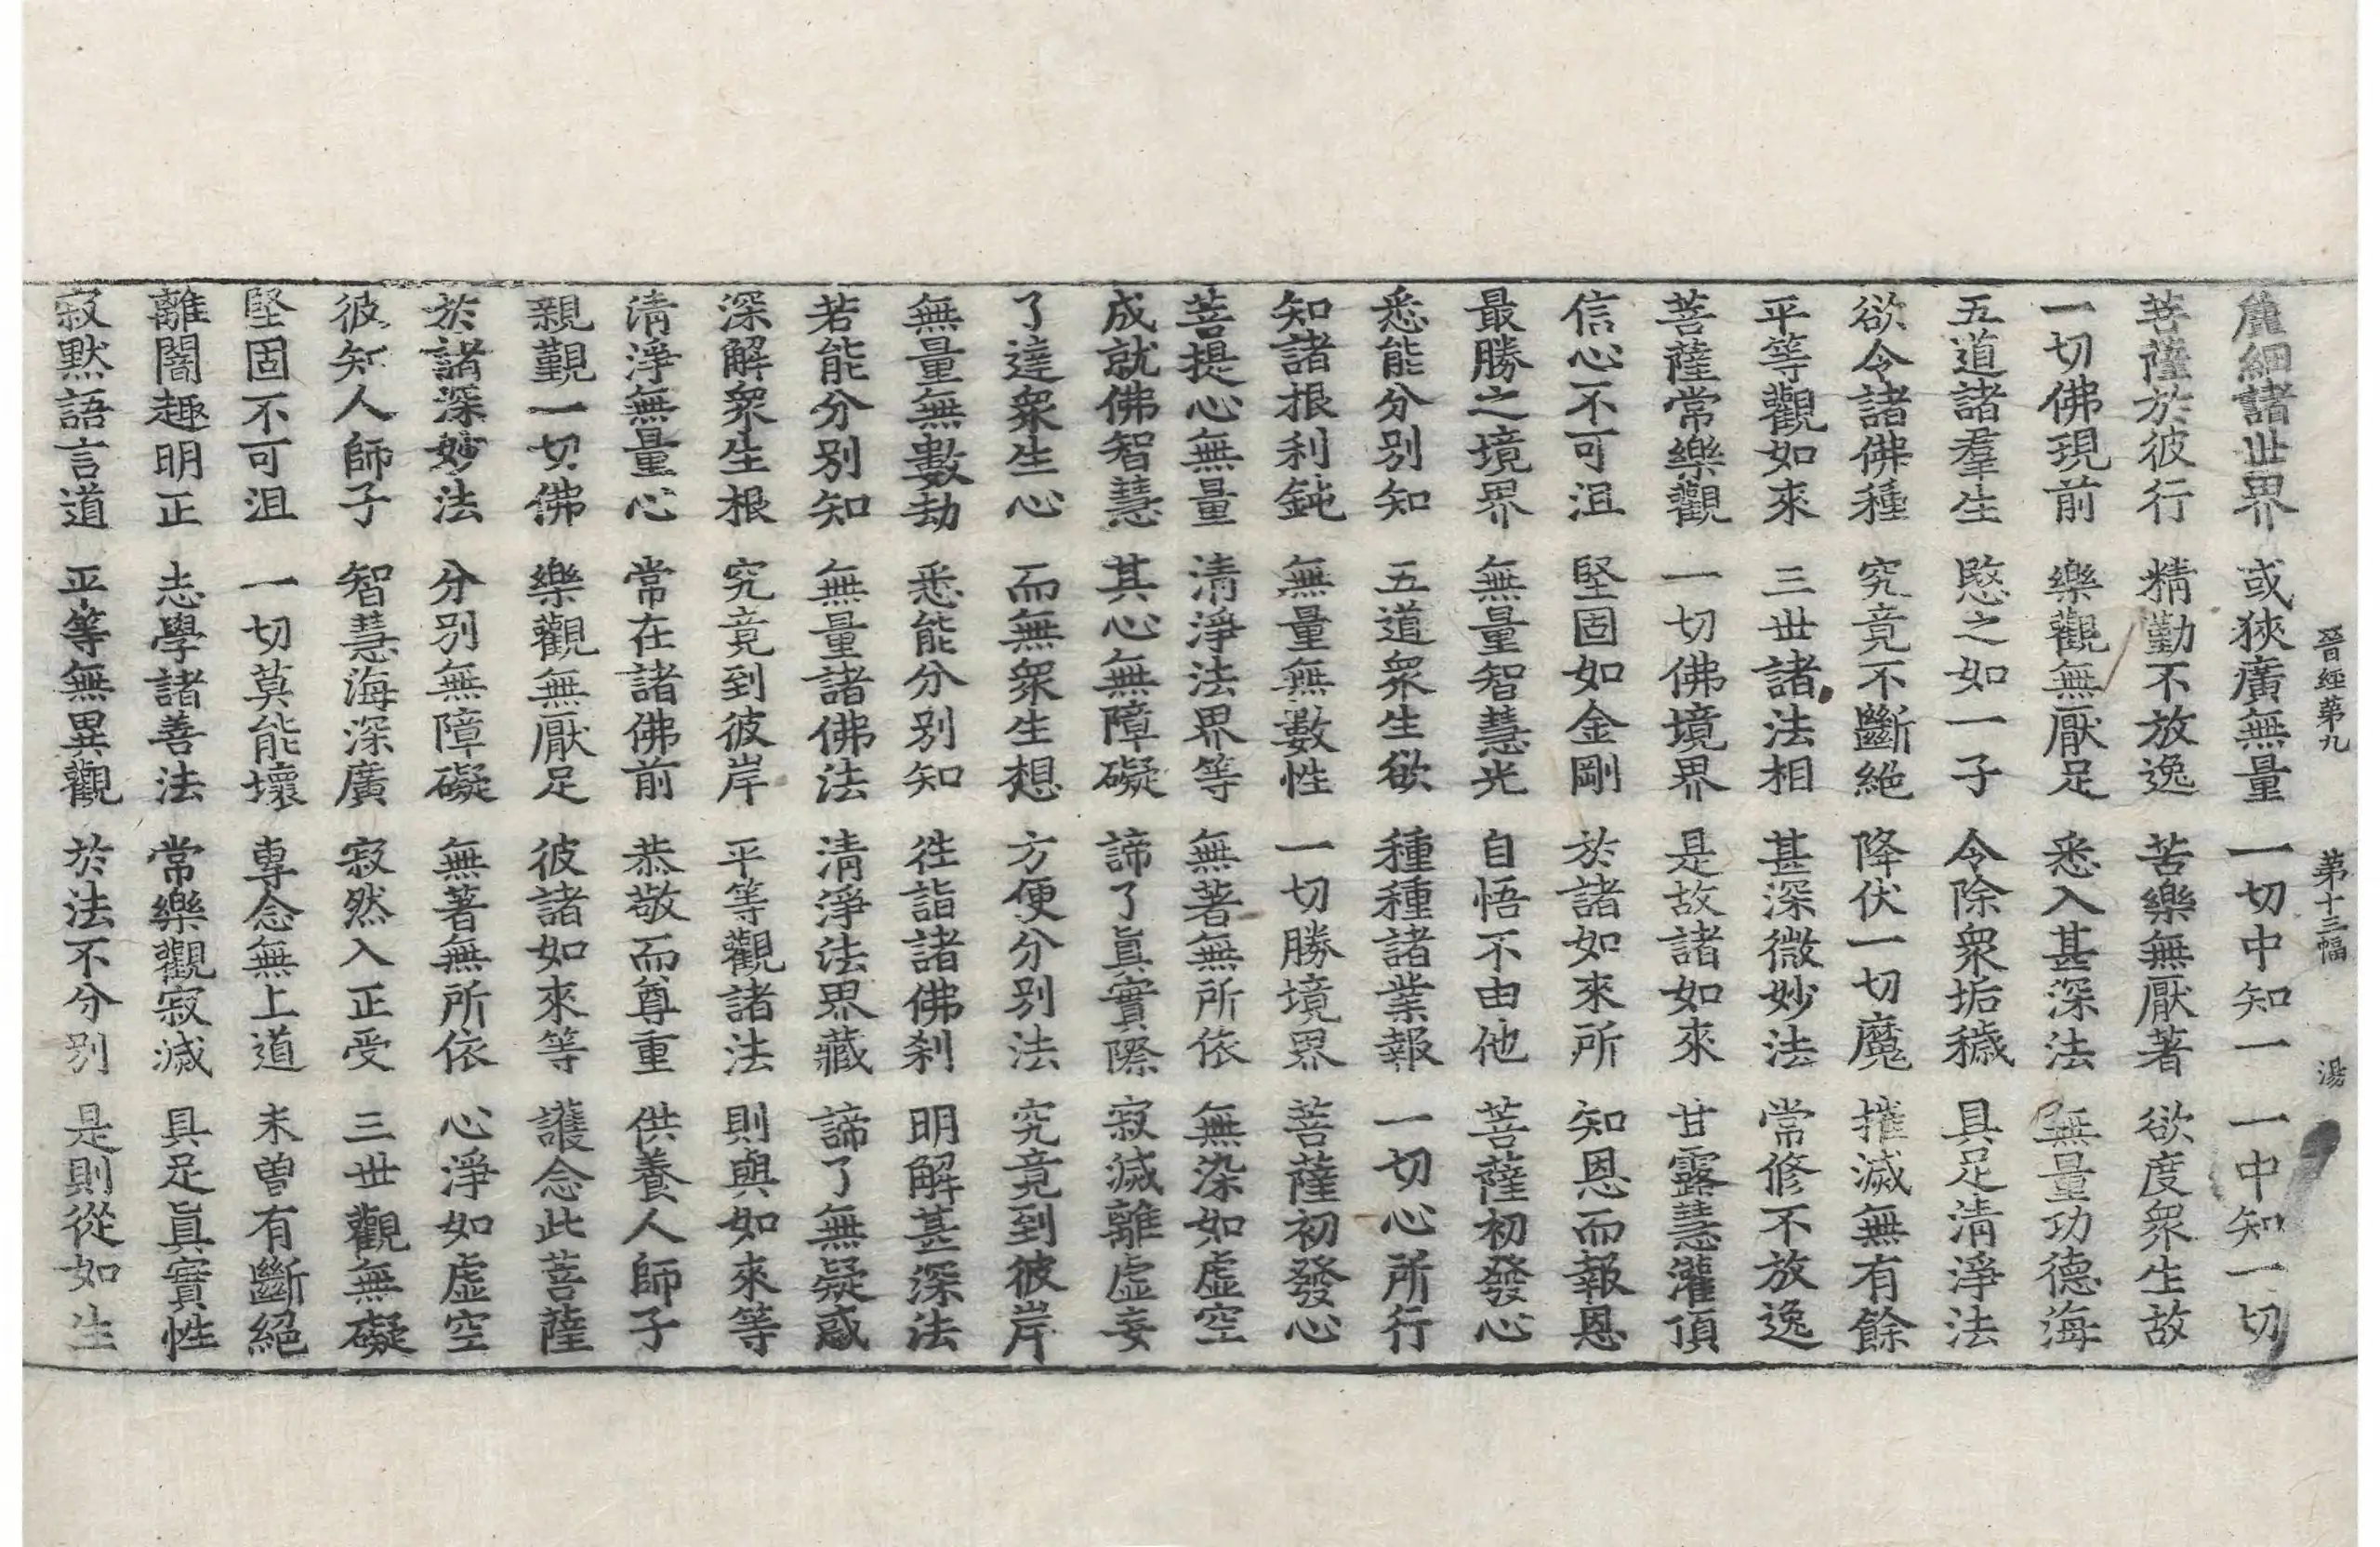 晉經第九 第十三幅 湯
麁細諸世界 或狹廣無量 一切中知一 一中知一切
菩薩於彼行 精勤不放逸 苦樂無厭著 欲度衆生故
一切佛現前 樂觀無厭足 悉入甚深法 無量功德海
五道諸羣生 愍之如一子 令除衆垢穢 具足清淨法
欲令諸佛種 究竟不斷絶 降伏一切魔 摧滅無有餘
平等觀如來 三世諸法相 甚深微妙法 常修不放逸
菩薩常樂觀 一切佛境界 是故諸如來 甘露慧灌頂
信心不可沮 堅固如金剛 於諸如來所 知恩而報恩
最勝之境界 無量智慧光 自悟不由他 菩薩初發心
悉能分別知 五道衆生欲 種種諸業報 一切心所行
知諸根利鈍 無量無數性 一切勝境界 菩薩初發心
菩提心無量 清淨法界等 無著無所依 無染如虛空
成就佛智慧 其心無障礙 諦了眞實際 寂滅離虛妄
了達衆生心 而無衆生想 方便分別法 究竟到彼岸
無量無數劫 悉能分別知 徃詣諸佛刹 明解甚深法
若能分別知 無量諸佛法 清淨法界藏 諦了無疑惑
深解衆生根 究竟到彼岸 平等觀諸法 則與如來等
清淨無量心 常在諸佛前 恭敬而尊重 供養人師子
親覲一切佛 樂觀無厭足 彼諸如來等 護念此菩薩
於諸深妙法 分別無障礙 無著無所依 心淨如虛空
彼知人師子 智慧海深廣 寂然入正受 三世觀無礙
堅固不可沮 一切莫能壞 專念無上道 未曾有斷絕
離闇趣明正 志學諸善法 常樂觀寂滅 具足眞實性
寂黙語言道 平等無異觀 於法不分別 是則從如生